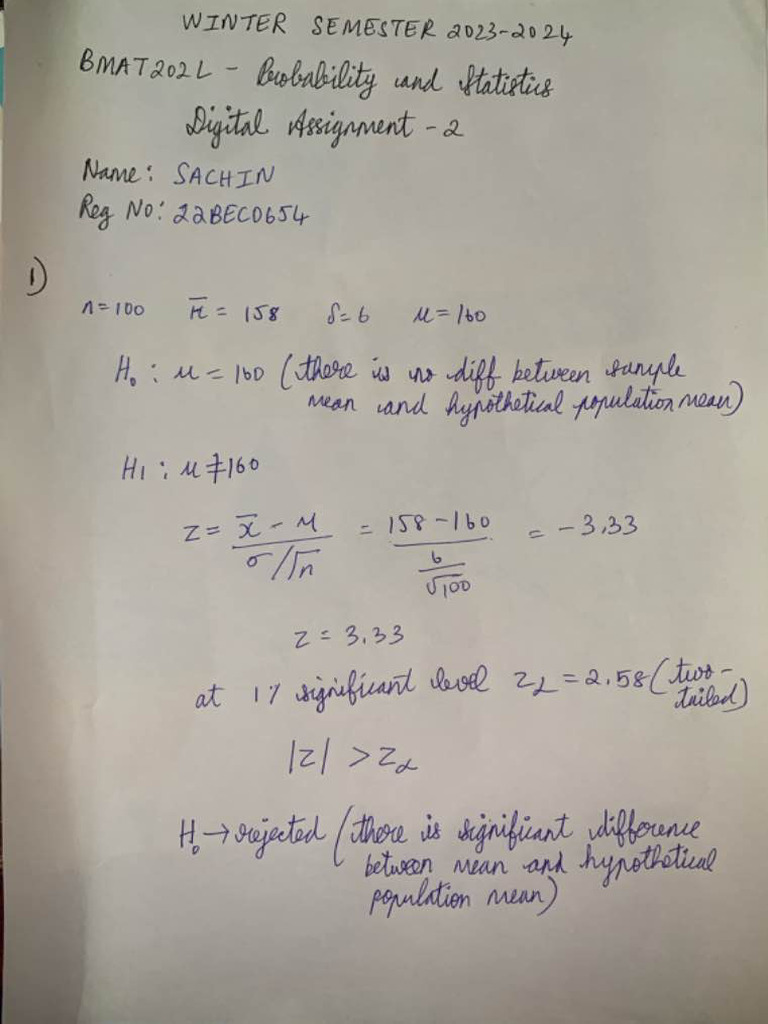 WINTER SEMESTER 2023-2024
BMAT202L - Probability and Statistics
Digital Assignment - 2
Name: SACHIN
Reg No: 22BEC0654
1)
n=100 x̄ = 158 S=6 μ=160
H₀ : μ = 160 (there is no diff between sample
mean and hypothetical population mean)
H1 : μ ≠ 160
z = (x̄ - μ) / (σ/√n) = (158-160) / (6/√100) = -3.33
z = 3.33
at 1% significant level zα = 2.58 (two-
tailed)
|z| > zα
H₀ → rejected (there is significant difference
between mean and hypothetical
population mean)